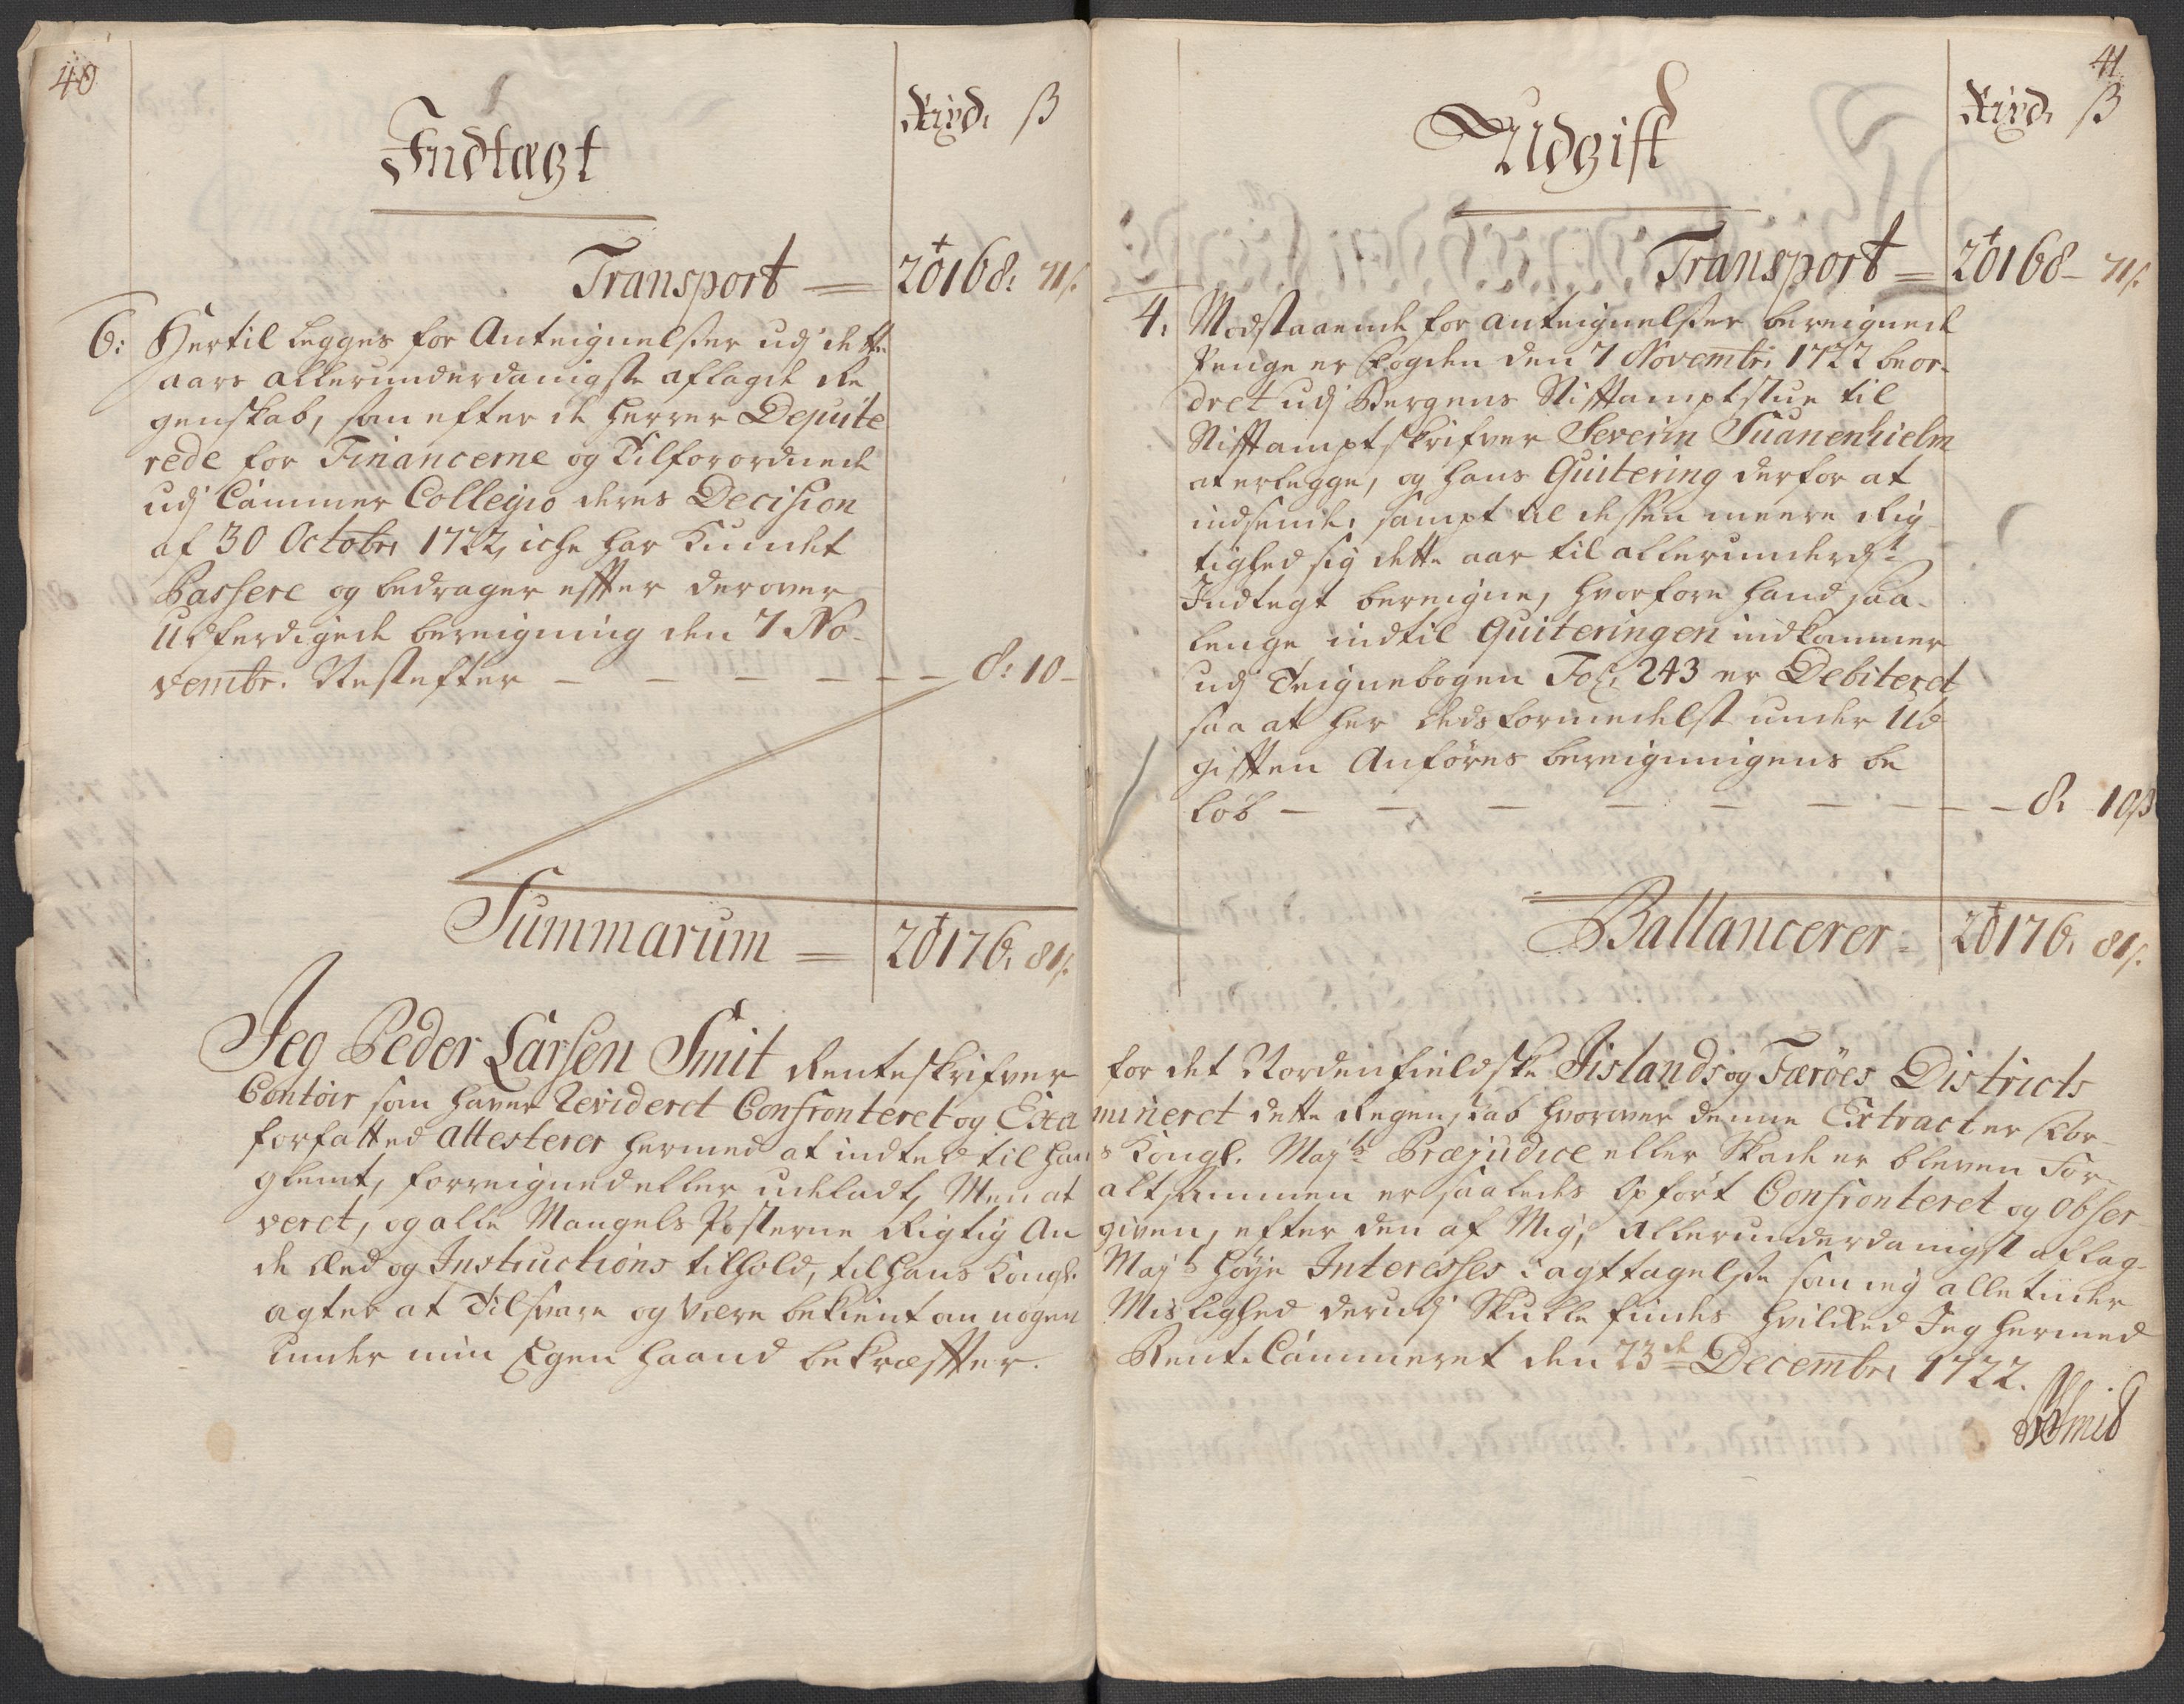 40
Indtægt
Rixd. ß
Transport = 20168: 71/.
6: Hertil legges for Anteignelser udj dette
aars allerunderdanigste aflagde Re
genskab, som efter de Herrer Depute
rede for Financerne og Tilforordnede
udj Cammer Collegio deres Decision
af 30 Octobr. 1722, iche har kundet
Passere og bedrager effter derover
Udferdigede bereigning den 7 No-
vembr. Nestefter — — — — — — 8: 10-
Summarum = 20176, 81/.
41
Udgift
Rixd. ß
Transport = 20168 - 71/.
4. Modstaaende for anteignelser bereignede
Penge er fogden den 7 Novembr. 1722 beor-
dret udj Bergens Stifftamptstue til
Stifftamptskrifver Severin Suanenhielm
at erlegge, og hans Quitering derfor at
indsende, sampt til dessen meere Rig-
tighed sig dette aar til allerunderdt.
Indtegt bereigne, hvorfore hand saa-
lenge indtil Quiteringen indkommer
udj Teignebogen Fol. 243 er Debiteret
saa at her deds formedelst under Ud
gifften Anföres bereigningens be
löb — — — — — — — — 8. 10ß
Ballancerer = 20176, 81/.
Jeg Peder Larsen Smit Renteskrifver for det Nordenfieldske Jislands og Færöes Districts
Contoir som haver Revideret Confronteret og Exa mineret dette Regenskab hvorover denne Extract er for-
forfatted attesterer hermed at indted til Hans Kongl. Mayts. Præjudice eller Skade er bleven For-
glemt, forreigned eller udeladt, Men at alt sammen er saaledes Opfört Confronteret og Obser-
veret, og alle Mangels Posterne Rigtig An given, efter den af Mig, allerunderdanigst aflag-
de Æed og Instructions tilhold, til Hans Kongl. Mayts höye Interesses iagttagelse som ieg alle tiider
agter at Tilsvare og være bekient om nogen Mislighed derudj Skulle findes hvilked Jeg hermed
under min Egen haand bekræffter. Rente Cammeret den 23de Decembr. 1722.
PSmid